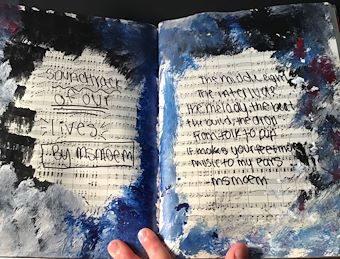 Soundtrack
of our
lives
By msmoem
The middle eight
The interlude
The melody, the beat
The build, the drop
From folk to pop
It makes your feet move
Music to my ears
-msmoem